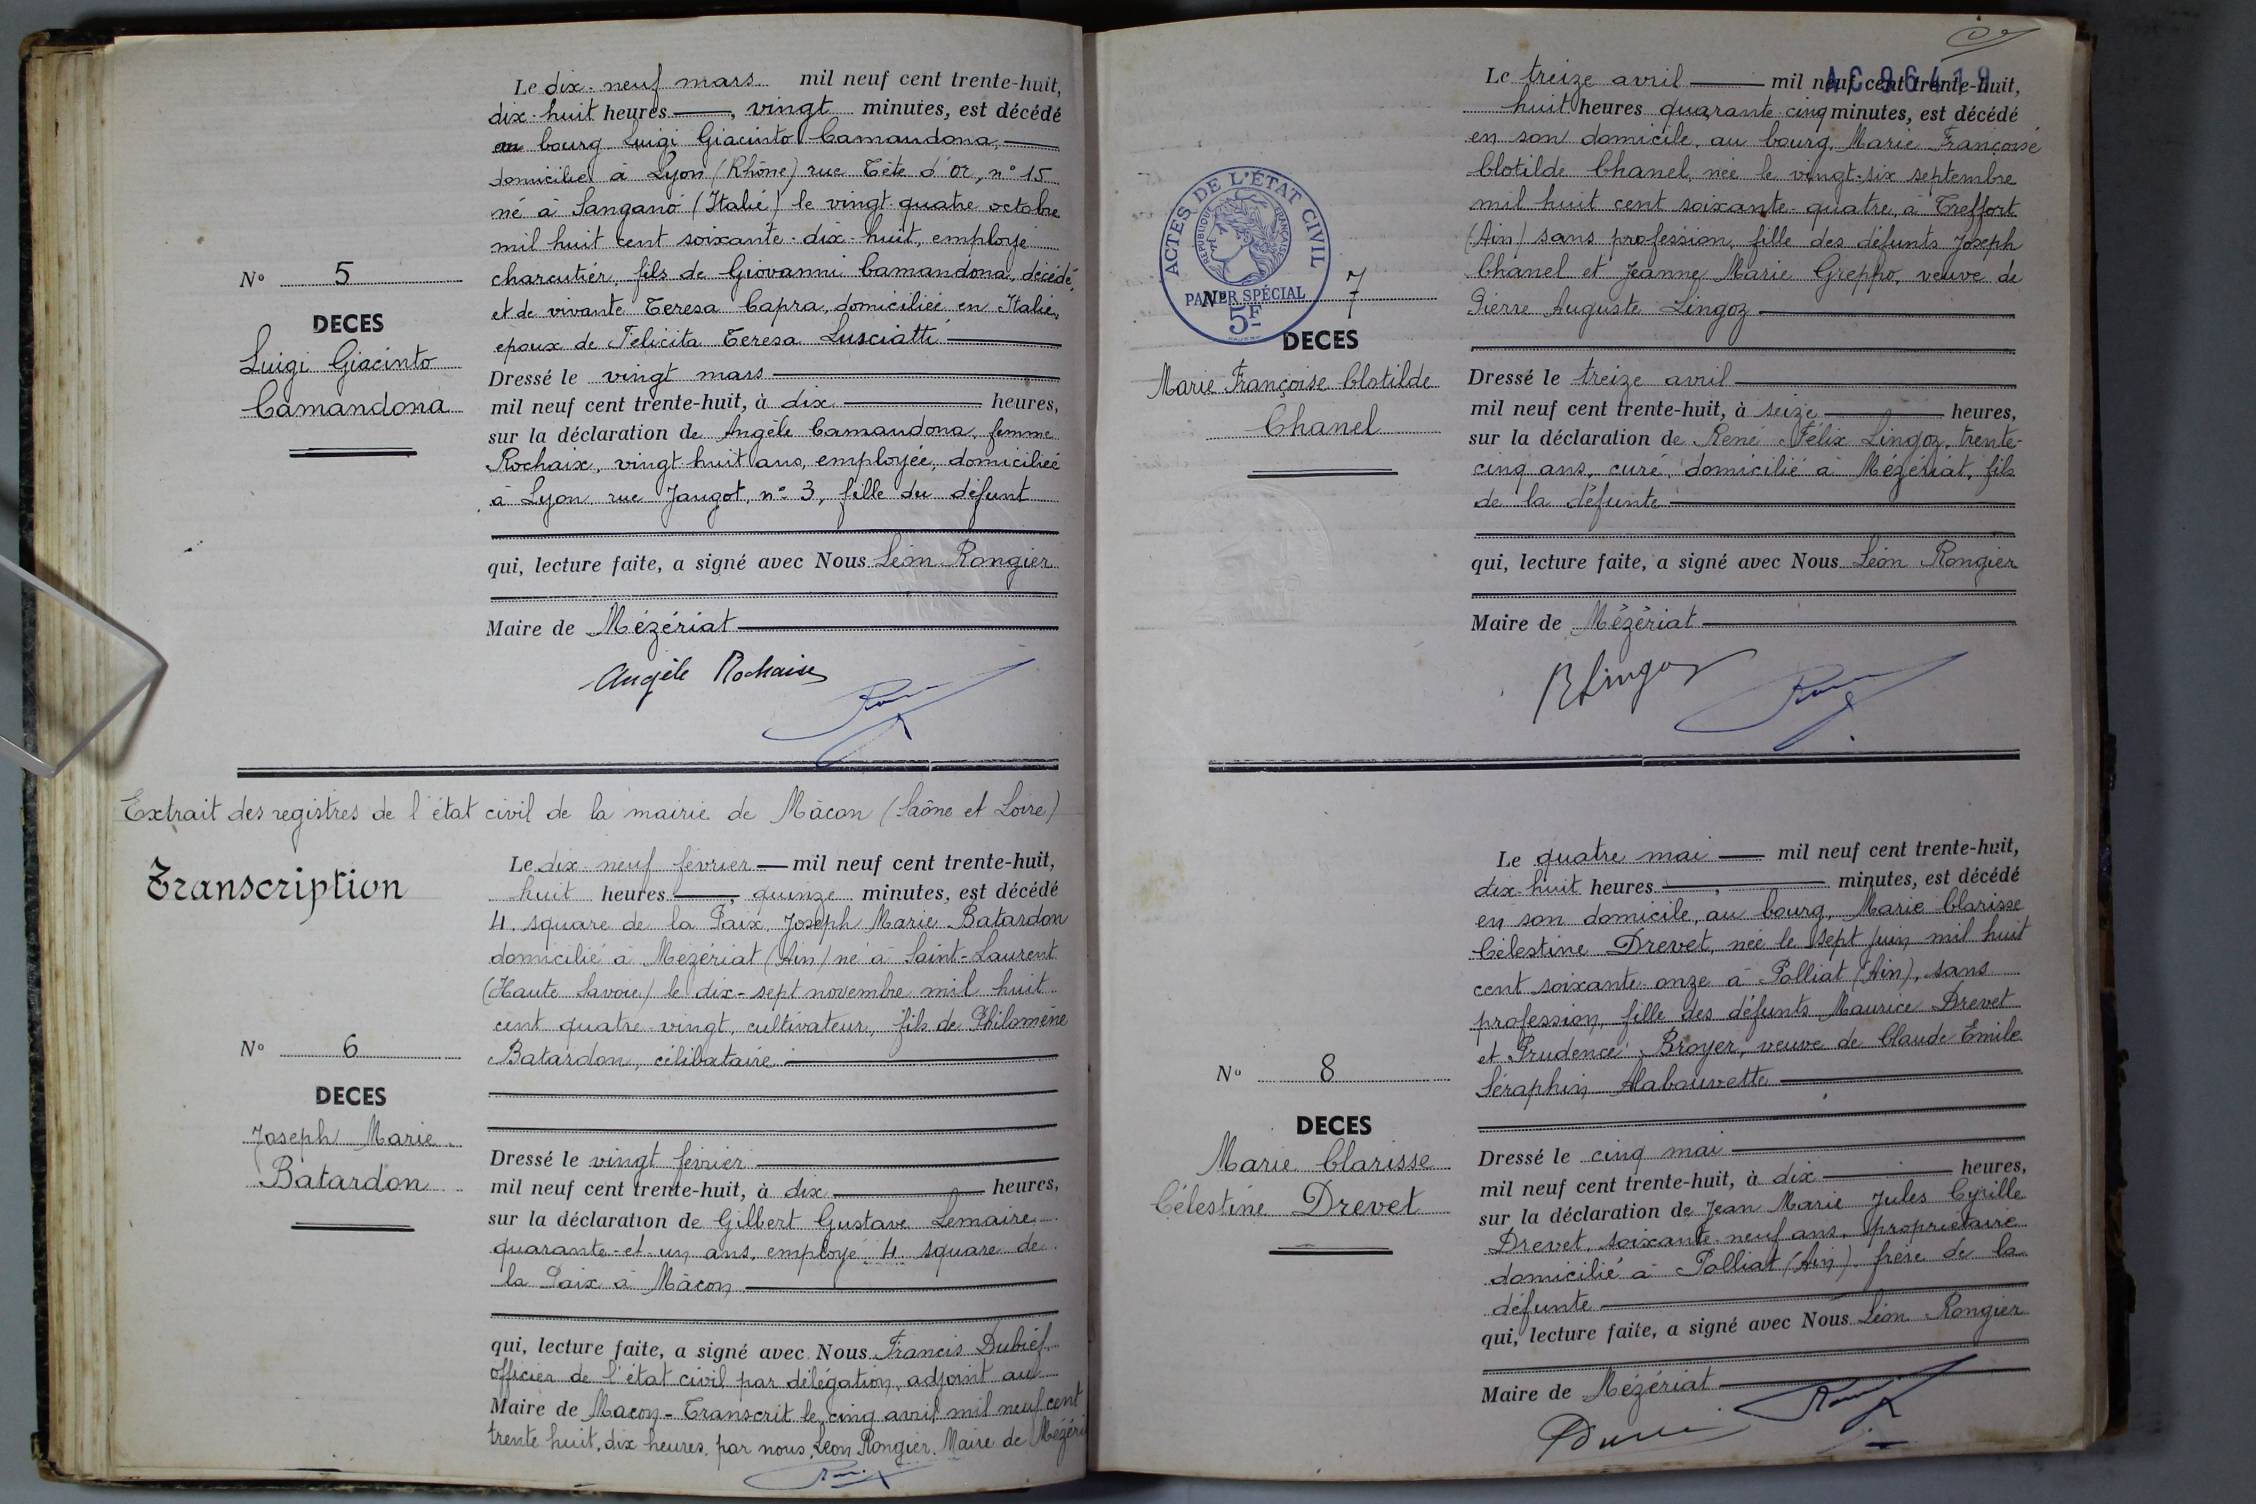 Le dix-neuf mars mil neuf cent trente-huit,
dix-huit heures, vingt minutes, est décédé
au bourg Luigi Giacinto Camandona,
domicilié à Lyon (Rhône) rue Tête d'Or, n° 15
né à Sangano (Italie) le vingt-quatre octobre
mil huit cent soixante-dix-huit, employé
N° 5
charcutier, fils de Giovanni Camandona, décédé,
et de vivante Teresa Capra, domiciliée en Italie,
DECES
époux de Felicita Teresa Lusciatti
Luigi Giacinto
Dressé le vingt mars
Camandona
mil neuf cent trente-huit, à dix heures,
sur la déclaration de Angèle Camandona, femme
Rochaix, vingt-huit ans, employée, domiciliée
à Lyon rue Jangot, n° 3, fille du défunt
qui, lecture faite, a signé avec Nous Léon Rongier
Maire de Mézériat
Angèle Rochaix
Extrait des registres de l'état civil de la mairie de Mâcon (Saône et Loire)
Transcription
Le dix-neuf février mil neuf cent trente-huit,
huit heures, quinze minutes, est décédé
4, square de la Paix, Joseph Marie Batardon
domicilié à Mézériat (Ain) né à Saint-Laurent
(Haute Savoie) le dix-sept novembre mil huit
cent quatre-vingt, cultivateur, fils de Philomène
N° 6
Batardon, célibataire
DECES
Joseph Marie
Batardon
Dressé le vingt février
mil neuf cent trente-huit, à dix heures,
sur la déclaration de Gilbert Gustave Lemaire,
quarante-et un ans, employé 4 square de
la Paix à Mâcon
qui, lecture faite, a signé avec Nous Francis Dubief,
officier de l'état civil par délégation, adjoint au
Maire de Macon - Transcrit le cinq avril mil neuf cent
trente huit, dix heures, par nous, Léon Rongier, Maire de Mézéri
AC 96419
Le treize avril mil neuf cent trente-huit,
huit heures quarante-cinq minutes, est décédé
en son domicile, au bourg, Marie Françoise
Clotilde Chanel, née le vingt-six septembre
mil huit cent soixante-quatre, à Treffort
(Ain) sans profession, fille des défunts Joseph
Chanel et Jeanne Marie Greppo, veuve de
Pierre Auguste Lingoz
ACTES DE L'ÉTAT CIVIL
RÉPUBLIQUE FRANÇAISE
PAPIER SPÉCIAL
5F
N° 7
DECES
Marie Françoise Clotilde
Chanel
Dressé le treize avril
mil neuf cent trente-huit, à seize heures,
sur la déclaration de René Félix Lingoz, trente-
cinq ans, curé, domicilié à Mézériat, fils
de la défunte
qui, lecture faite, a signé avec Nous Léon Rongier
Maire de Mézériat
R Lingoz
Le quatre mai mil neuf cent trente-huit,
dix-huit heures, minutes, est décédé
en son domicile, au bourg, Marie Clarisse
Célestine Drevet, née le sept juin mil huit
cent soixante-onze à Polliat (Ain), sans
profession, fille des défunts Maurice Drevet
et Prudence Broyer, veuve de Claude Emile
Séraphin Alabouvette
N° 8
DECES
Marie Clarisse
Célestine Drevet
Dressé le cinq mai
mil neuf cent trente-huit, à dix heures,
sur la déclaration de Jean Marie Jules Cyrille
Drevet, soixante-neuf ans, propriétaire
domicilié à Polliat (Ain), frère de la
défunte
qui, lecture faite, a signé avec Nous Léon Rongier
Maire de Mézériat